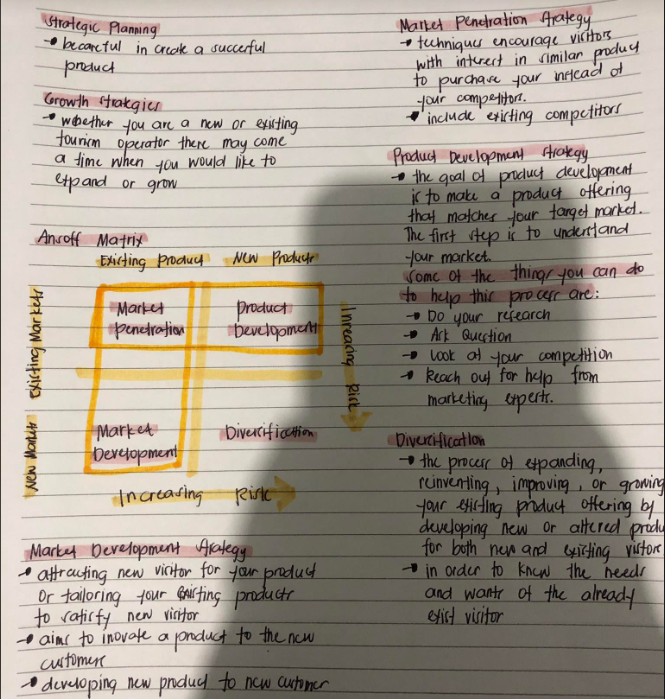 Strategic Planning
→ becareful in create a succerful
product
Growth strategies
→ whether you are a new or existing
tourism operator there may come
a time when you would like to
expand or grow
Ansoff Matrix
Existing Product New Products
Existing Markets
New Markets
Market
penetration
Product
Development
Market
Development
Diversification
Increacing Risk
Increasing Risk
Market Development Strategy
→ attracting new visitor for your product
or tailoring your existing products
to satisfy new visitor
→ aims to inovate a product to the new
customers
→ developing new product to new customer
Market Penetration Strategy
→ techniques encourage visitors
with interest in similar product
to purchase your instead of
your competitors.
→ include existing competitors
Product Development Strategy
→ the goal of product development
is to make a product offering
that matches your target market.
The first step is to understand
your market.
some of the things you can do
to help this process are:
→ Do your research
→ Ask Question
→ Look at your competition
→ Reach out for help from
marketing experts.
Diversification
→ the process of expanding,
reinventing, improving, or growing
your existing product offering by
developing new or altered produ
for both new and existing visitors
→ in order to know the needs
and wants of the already
exist visitor